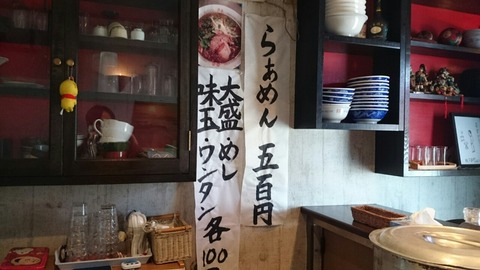 らぁめん 五百円
大盛・めし
味玉・ワンタン各100